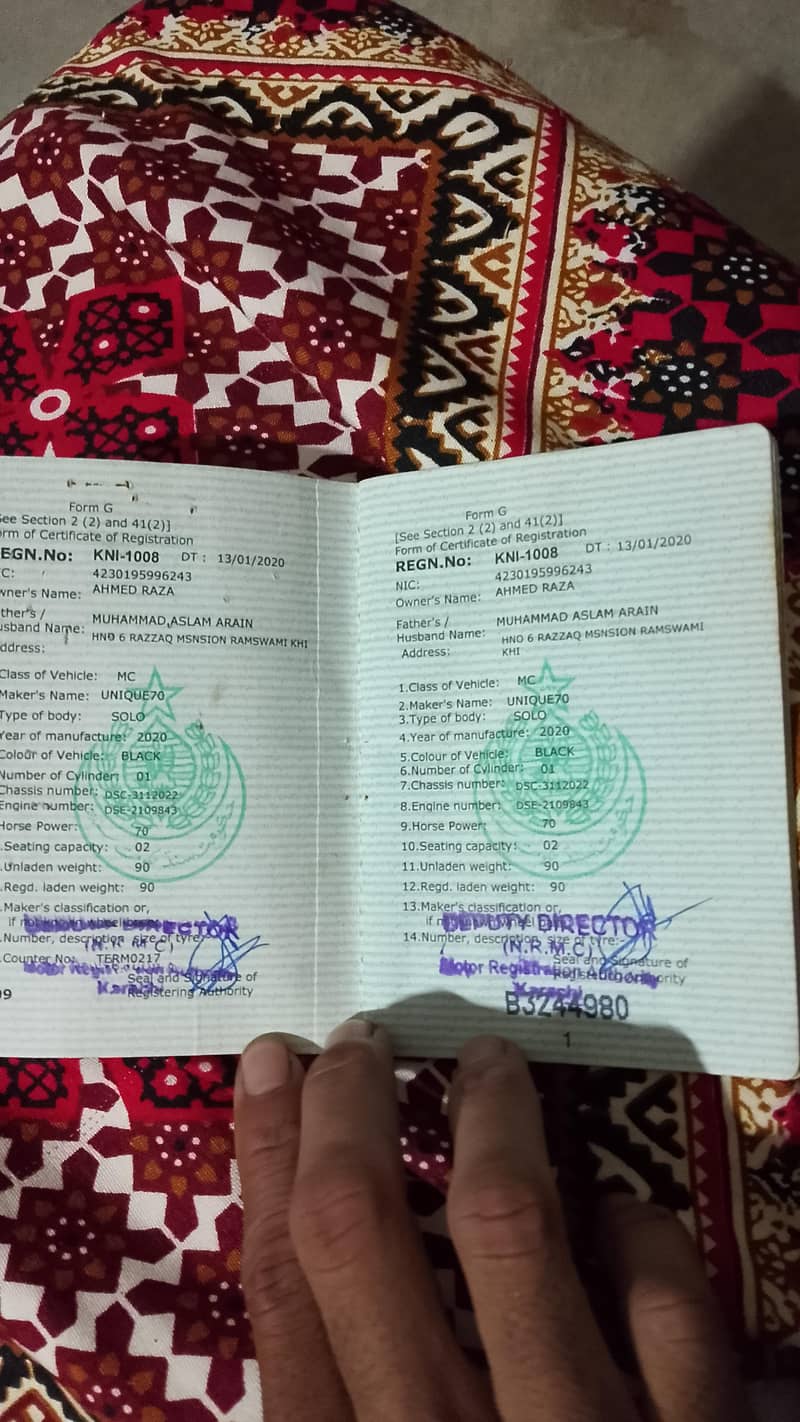 Form G
See Section 2 (2) and 41(2)]
rm of Certificate of Registration
EGN.No: KNI-1008 DT : 13/01/2020
C: 4230195996243
wner's Name: AHMED RAZA
ther's /
usband Name: MUHAMMAD ASLAM ARAIN
ddress: HNO 6 RAZZAQ MSNSION RAMSWAMI KHI
Class of Vehicle: MC
Maker's Name: UNIQUE70
Type of body: SOLO
Year of manufacture: 2020
Colour of Vehicle: BLACK
Number of Cylinder: 01
Chassis number: DSC-3112022
Engine number: DSE-2109843
Horse Power: 70
.Seating capacity: 02
.Unladen weight: 90
.Regd. laden weight: 90
.Maker's classification or,
if not
DEPUTY DIRECTOR
.Number, description, size of tyre:
(N.R.M.C)
.Counter No: TERM0217
Motor Registration
Seal and Signature of
Karachi
Registering Authority
09
Form G
[See Section 2 (2) and 41(2)]
Form of Certificate of Registration
REGN.No: KNI-1008 DT : 13/01/2020
NIC: 4230195996243
Owner's Name: AHMED RAZA
Father's /
Husband Name: MUHAMMAD ASLAM ARAIN
Address: HNO 6 RAZZAQ MSNSION RAMSWAMI
KHI
1.Class of Vehicle: MC
2.Maker's Name: UNIQUE70
3.Type of body: SOLO
4.Year of manufacture: 2020
5.Colour of Vehicle: BLACK
6.Number of Cylinder: 01
7.Chassis number: DSC-3112022
8.Engine number: DSE-2109843
9.Horse Power: 70
10.Seating capacity: 02
11.Unladen weight: 90
12.Regd. laden weight: 90
13.Maker's classification or,
if
DEPUTY DIRECTOR
14.Number, description, size of tyre:-
(N.R.M.C)
Seal and Signature of
Motor Registration Authority
Registering Authority
Karachi
B3244980
1